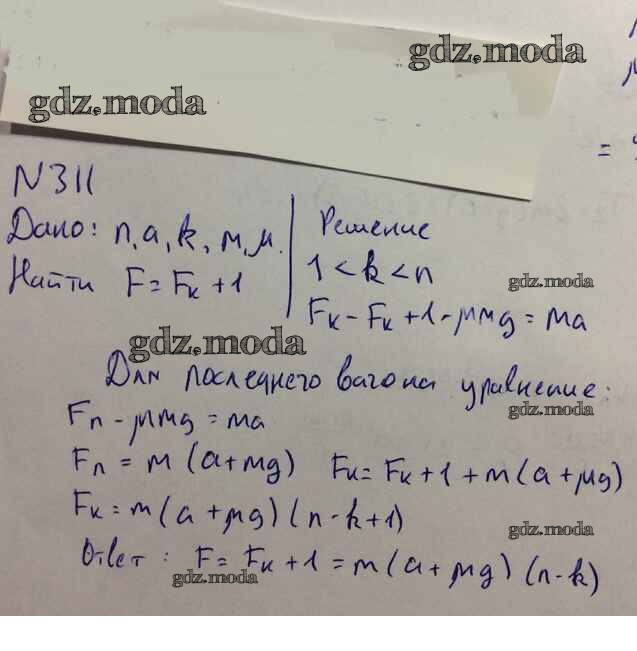 gdz.moda
gdz.moda
=
N311
Дано: n, a, k, m, μ.
Найти F = Fк + 1
Решение
1 < k < n
gdz.moda
Fк - Fк + 1 - μmg = ma
gdz.moda
Для последнего вагона уравнение:
gdz.moda
Fn - μmg = ma
Fn = m (a + mg) Fк = Fк + 1 + m (a + μg)
Fк = m (a + μg) (n - k + 1)
gdz.moda
Ответ: F = Fк + 1 = m (a + μg) (n - k)
gdz.moda